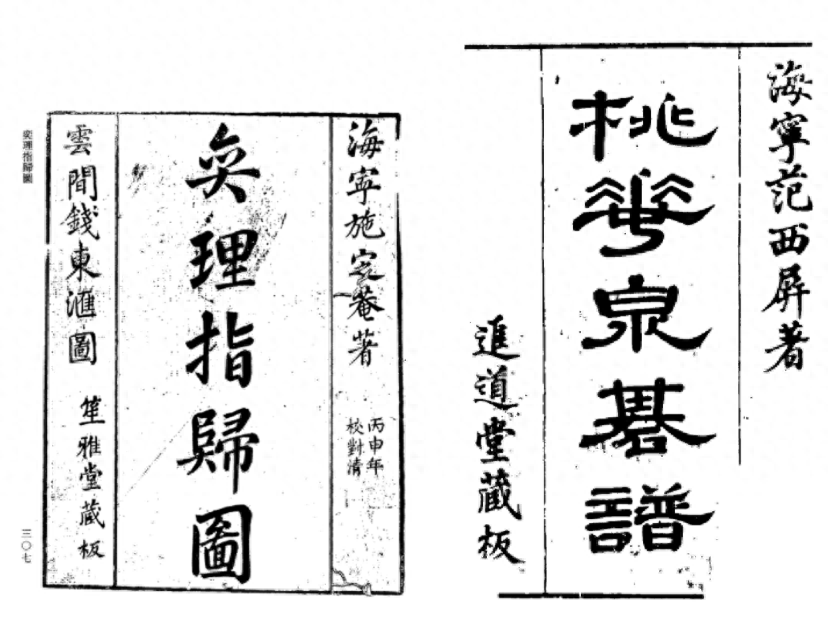 海寧范西屏著
桃華泉碁譜
進道堂藏板
海寧施定菴著
丙申年
校對清
奕理指歸圖
雲間錢東滙圖
笙雅堂藏板
奕理指歸圖
三〇七